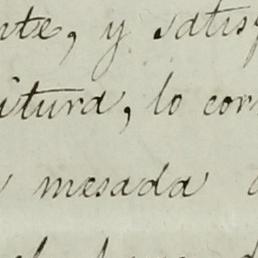 nte, y satisf
itura, lo con
mesada